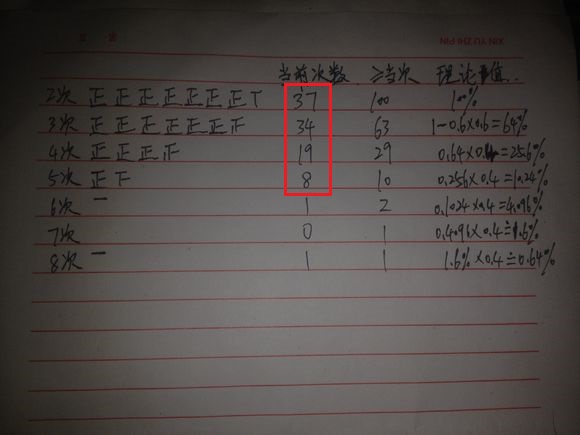 XIN YU ZHI PIN
当前次数 ≥当次 理论值
2次 正 正 正 正 正 正 正 T 37 100 100%
3次 正 正 正 正 正 正 34 63 1-0.6×0.6=64%
4次 正 正 正 19 29 0.64×0.4=25.6%
5次 正 下 8 10 0.256×0.4=10.24%
6次 一 1 2 0.1024×0.4=4.096%
7次 0 1 0.4096×0.4≐1.6%
8次 一 1 1 1.6%×0.4≐0.64%